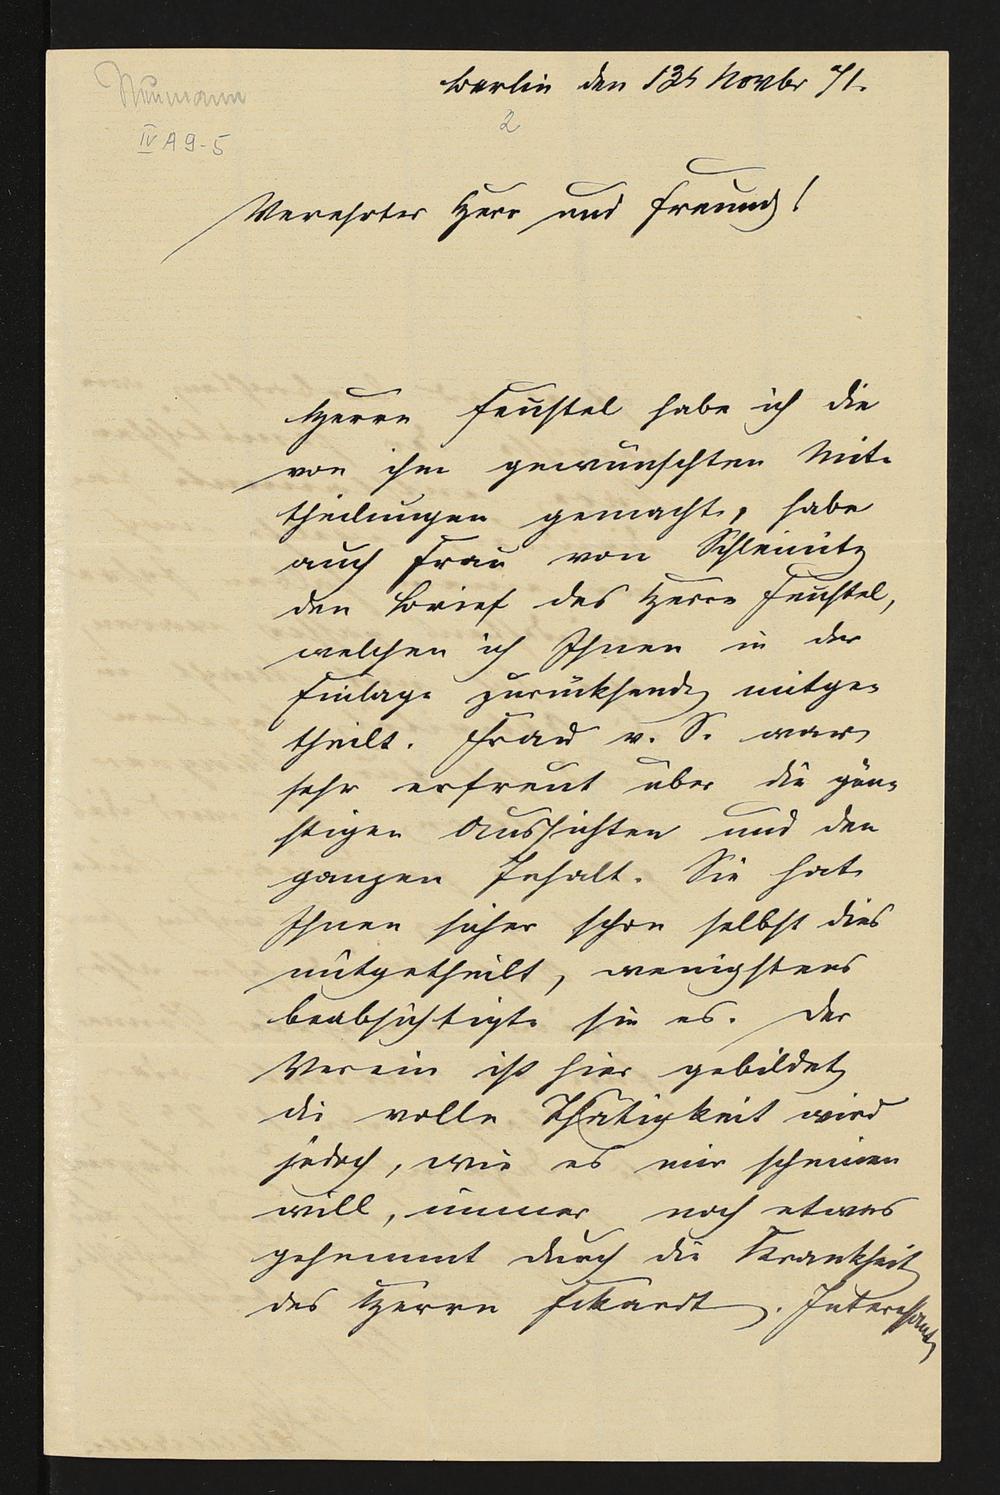 Neumann
IV A 9-5
Berlin den 13t Novbr 71.
2
Verehrter Herr und Freund!
Herrn Feustel habe ich die
von ihm gewünschten Mit-
theilungen gemacht, habe
auch Frau von Schleinitz
den Brief des Herrn Feustel,
welchen ich Ihnen in der
Einlage zurücksende, mitge-
theilt. Frau v. S. war
sehr erfreut über die gün-
stigen Aussichten und den
ganzen Inhalt. Sie hat
Ihnen sicher schon selbst dies
mitgetheilt, wenigstens
beabsichtigte sie es. Der
Verein ist hier gebildet,
die volle Thätigkeit wird
jedoch, wie es mir scheinen
will, immer noch etwas
gehemmt durch die Krankheit
des Herrn Eckardt. Interessant